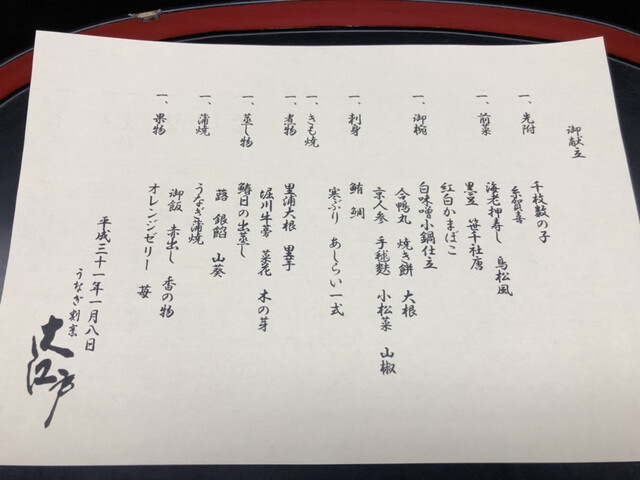 御献立
一、先附
千枚数の子
糸賀喜
一、前菜
海老押寿し 鳥松風
黒豆 笹千社唐
紅白かまぼこ
一、御椀
白味噌小鍋仕立
合鴨丸 焼き餅 大根
京人参 手毬麩 小松菜 山椒
一、刺身
鮪 鯛
寒ぶり あしらい一式
一、きも焼
一、煮物
里浦大根 里芋
堀川牛蒡 菜花 木の芽
一、蒸し物
鰆日の出蒸し
蕗 銀餡 山葵
一、蒲焼
うなぎ蒲焼
御飯 赤出し 香の物
一、果物
オレンジゼリー 苺
平成三十一年一月八日
うなぎ割烹
大江戸